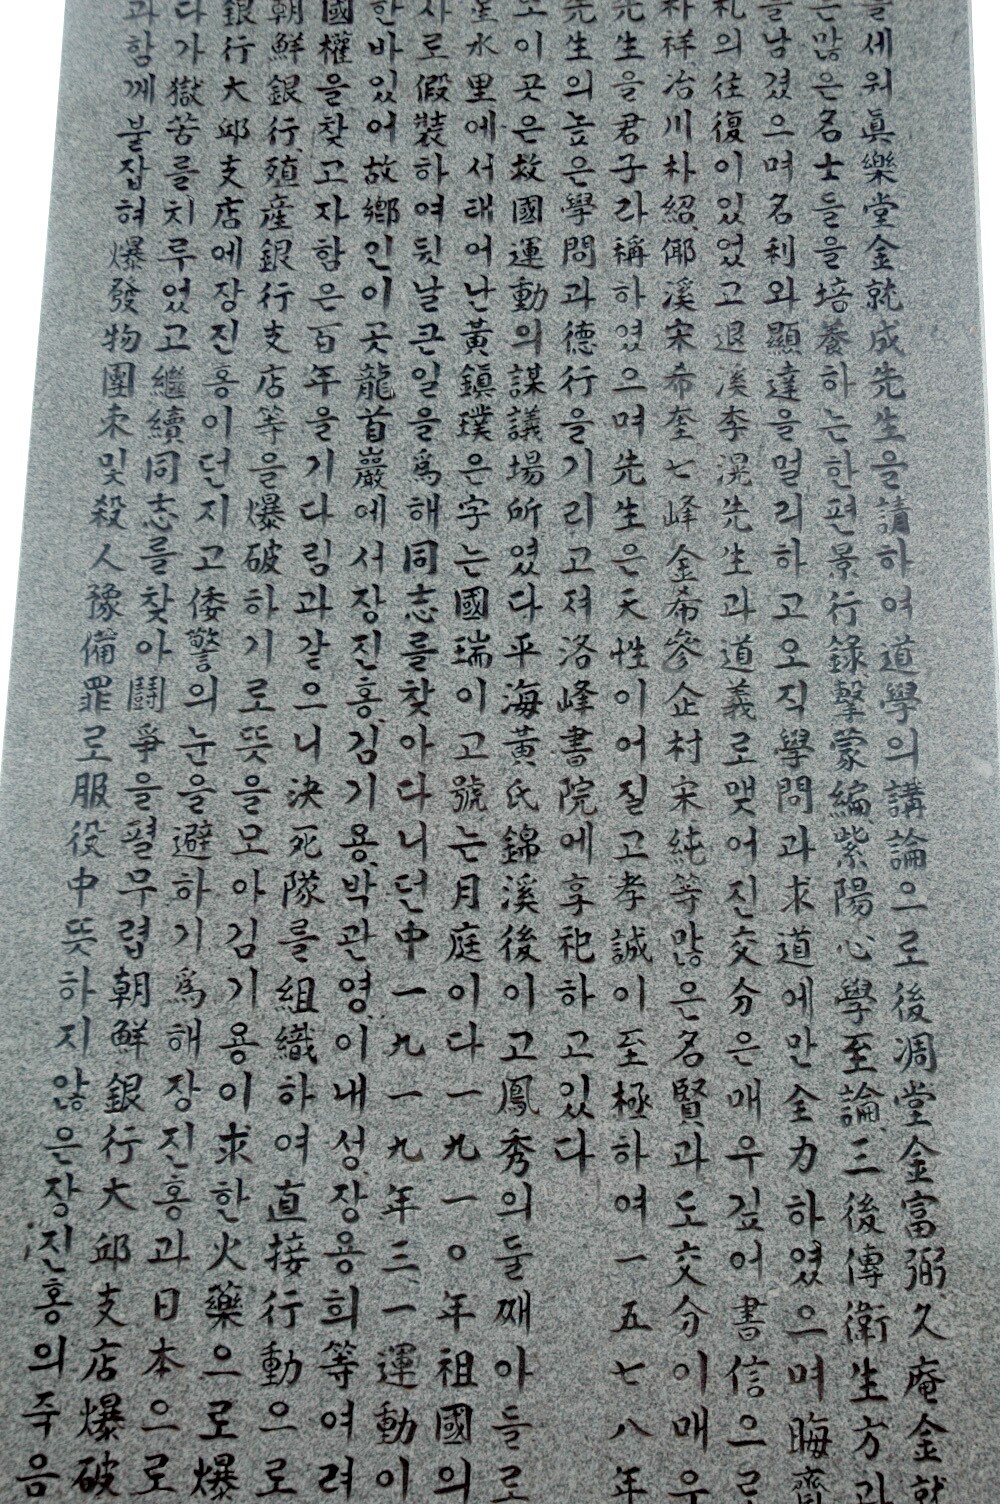 세워 眞樂堂 金就成先生을 請하여 道學의 講論으로 後凋堂 金富弼 久庵 金就
은 많은 名士들을 培養하는 한편 景行錄, 擊蒙編, 紫陽心學至論, 三後傳, 衛生方과
남겼으며 名利와 顯達을 멀리하고 오직 學問과 求道에만 全力하였으며 晦齋
札의 往復이 있었고 退溪 李滉先生과 道義로 맺어진 交分은 매우 깊어 書信으로
朴祥, 冶川 朴紹, 倻溪 宋希奎, 七峰 金希參, 企村 宋純 等 많은 名賢과 도 交分이 매우
先生을 君子라 稱하였으며 先生은 天性이 어질고 孝誠이 至極하여 一五七八年
先生의 높은 學問과 德行을 기리고져 洛峰書院에 享祀하고 있다
또 이곳은 救國運動의 謀議場所였다 平海黃氏 錦溪後이고 鳳秀의 둘째 아들로
水里에서 태어난 黃鎭璞은 字는 國瑞이고 號는 月庭이다 一九一〇年 祖國의
사로 假裝하여 뒷날 큰일을 爲해 同志를 찾아다니던中 一九一九年 三一運動이
한바 있어 故鄕인 이곳 龍首巖에서 장진홍, 김기용, 박관영, 이내성, 장용희 等 여러
國權을 찾고자 함은 百年을 기다림과 같으니 決死隊를 組織하여 直接行動으로
朝鮮銀行, 殖産銀行支店 等을 爆破하기로 뜻을 모아 김기용이 求한 火藥으로 爆
銀行 大邱支店에 장진홍이 던지고 倭警의 눈을 避하기 爲해 장진홍과 日本으로
다가 獄苦를 치루었고 繼續 同志를 찾아 鬪爭을 펼무렵 朝鮮銀行 大邱支店 爆破
과 함께 붙잡혀 爆發物團束 및 殺人豫備罪로 服役中 뜻하지 않은 장진홍의 죽음